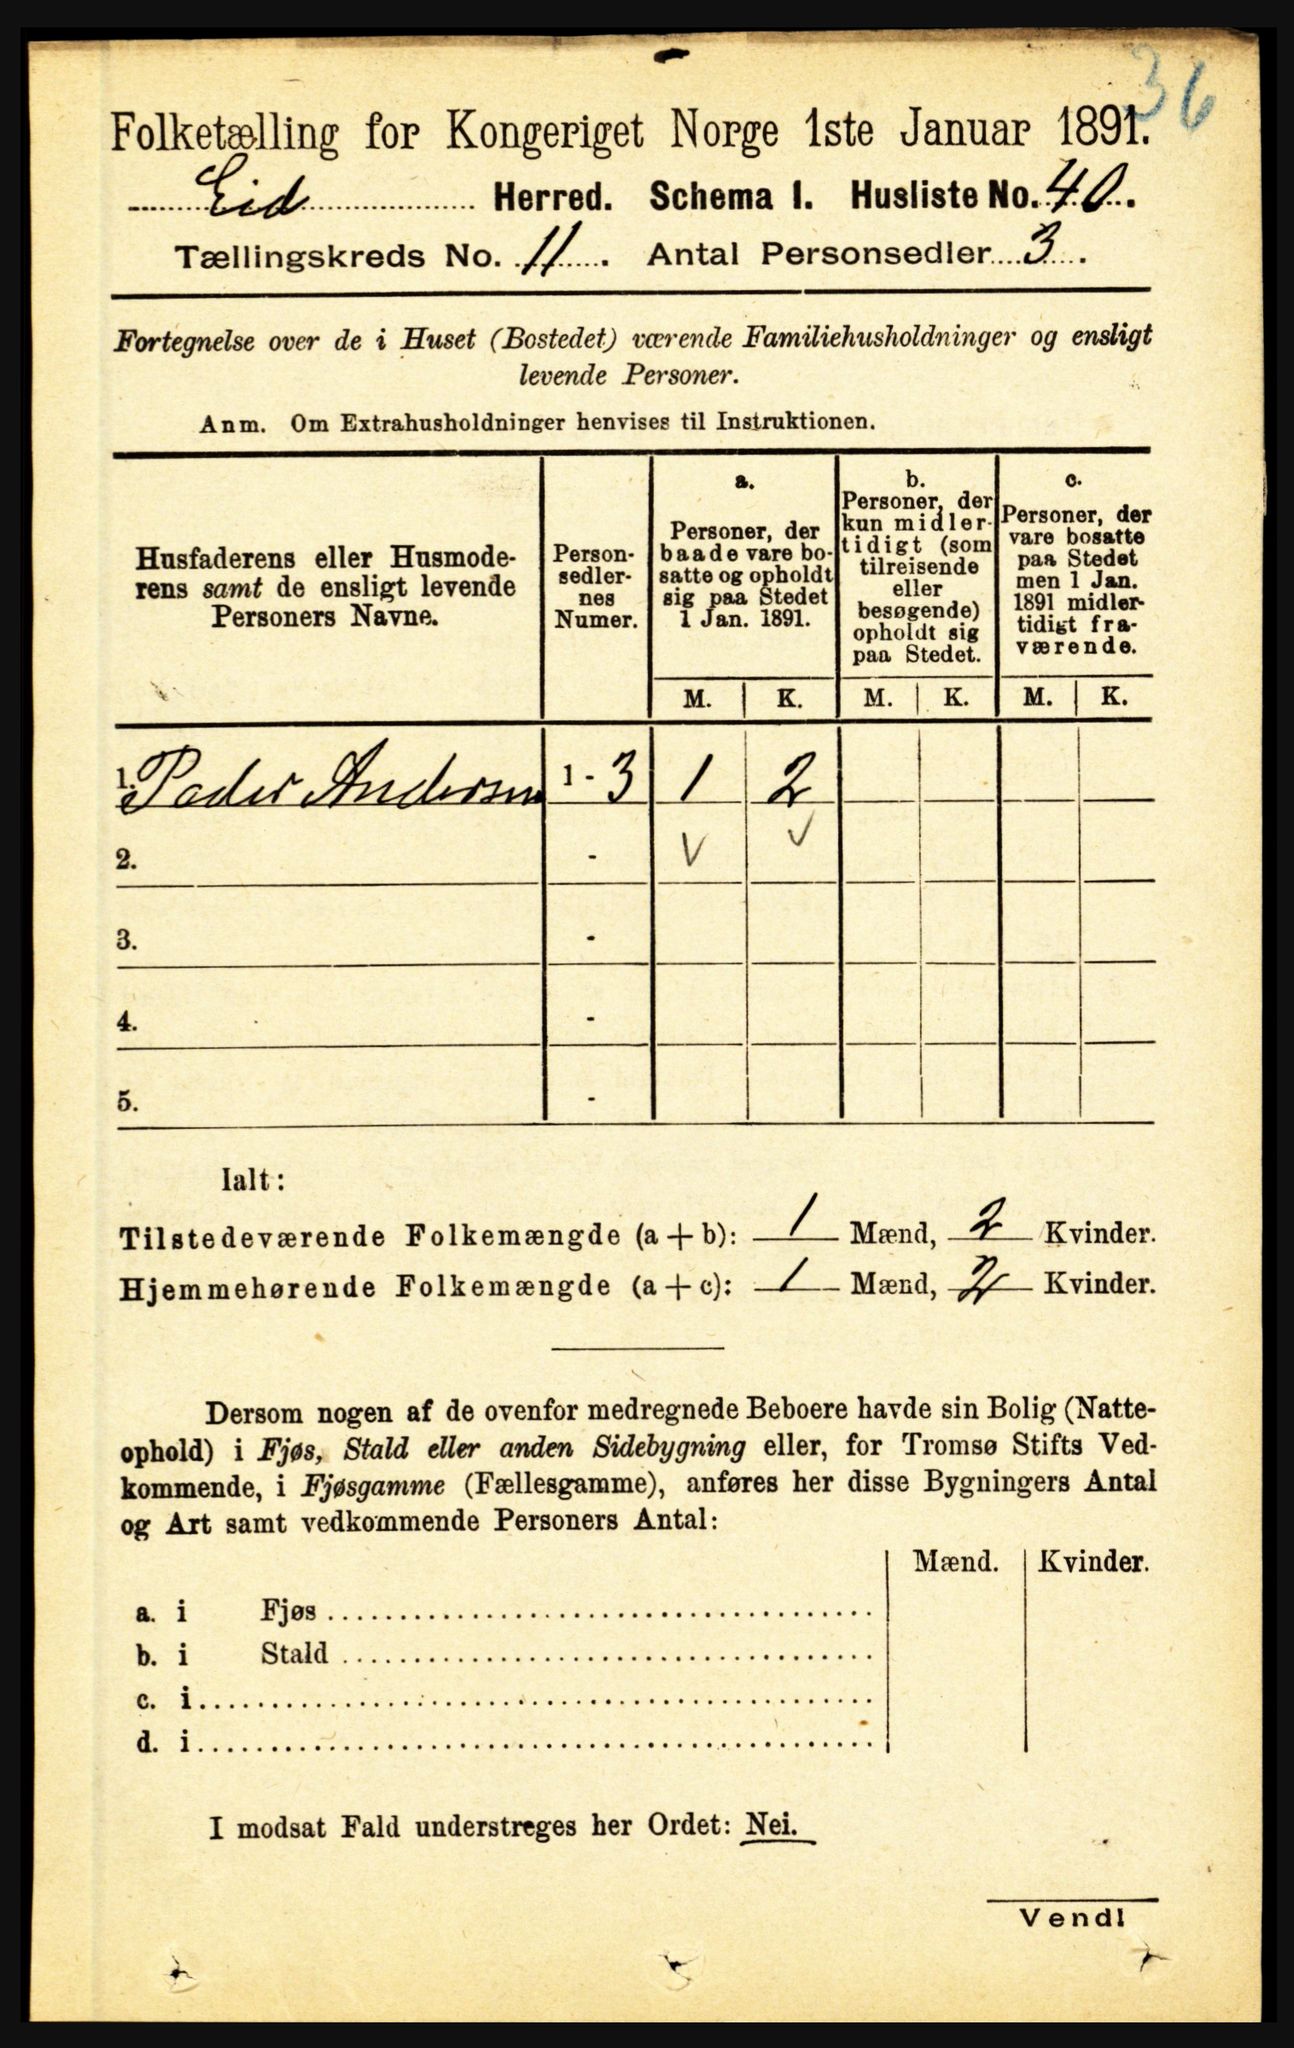 36
Folketælling for Kongeriget Norge 1ste Januar 1891.
Eid Herred. Schema I. Husliste No. 40.
Tællingskreds No. 11. Antal Personsedler 3.
Fortegnelse over de i Huset (Bostedet) værende Familiehusholdninger og ensligt
levende Personer.
Anm. Om Extrahusholdninger henvises til Instruktionen.
Husfaderens eller Husmode-
rens samt de ensligt levende
Personers Navne.
Person-
sedler-
nes
Numer.
a.
Personer, der
baade vare bo-
satte og opholdt
sig paa Stedet
1 Jan. 1891.
b.
Personer, der
kun midler-
tidigt (som
tilreisende
eller
besøgende)
opholdt sig
paa Stedet.
c.
Personer, der
vare bosatte
paa Stedet
men 1 Jan.
1891 midler-
tidigt fra-
værende.
M. K. M. K. M. K.
1. Peder Andersen 1 - 3 1 2
2. -
3. -
4. -
5. -
Ialt:
Tilstedeværende Folkemængde (a + b): 1 Mænd, 2 Kvinder.
Hjemmehørende Folkemængde (a + c): 1 Mænd, 2 Kvinder.
Dersom nogen af de ovenfor medregnede Beboere havde sin Bolig (Natte-
ophold) i Fjøs, Stald eller anden Sidebygning eller, for Tromsø Stifts Ved-
kommende, i Fjøsgamme (Fællesgamme), anføres her disse Bygningers Antal
og Art samt vedkommende Personers Antal:
Mænd. Kvinder.
a. i Fjøs
b. i Stald
c. i
d. i
I modsat Fald understreges her Ordet: Nei.
Vend!